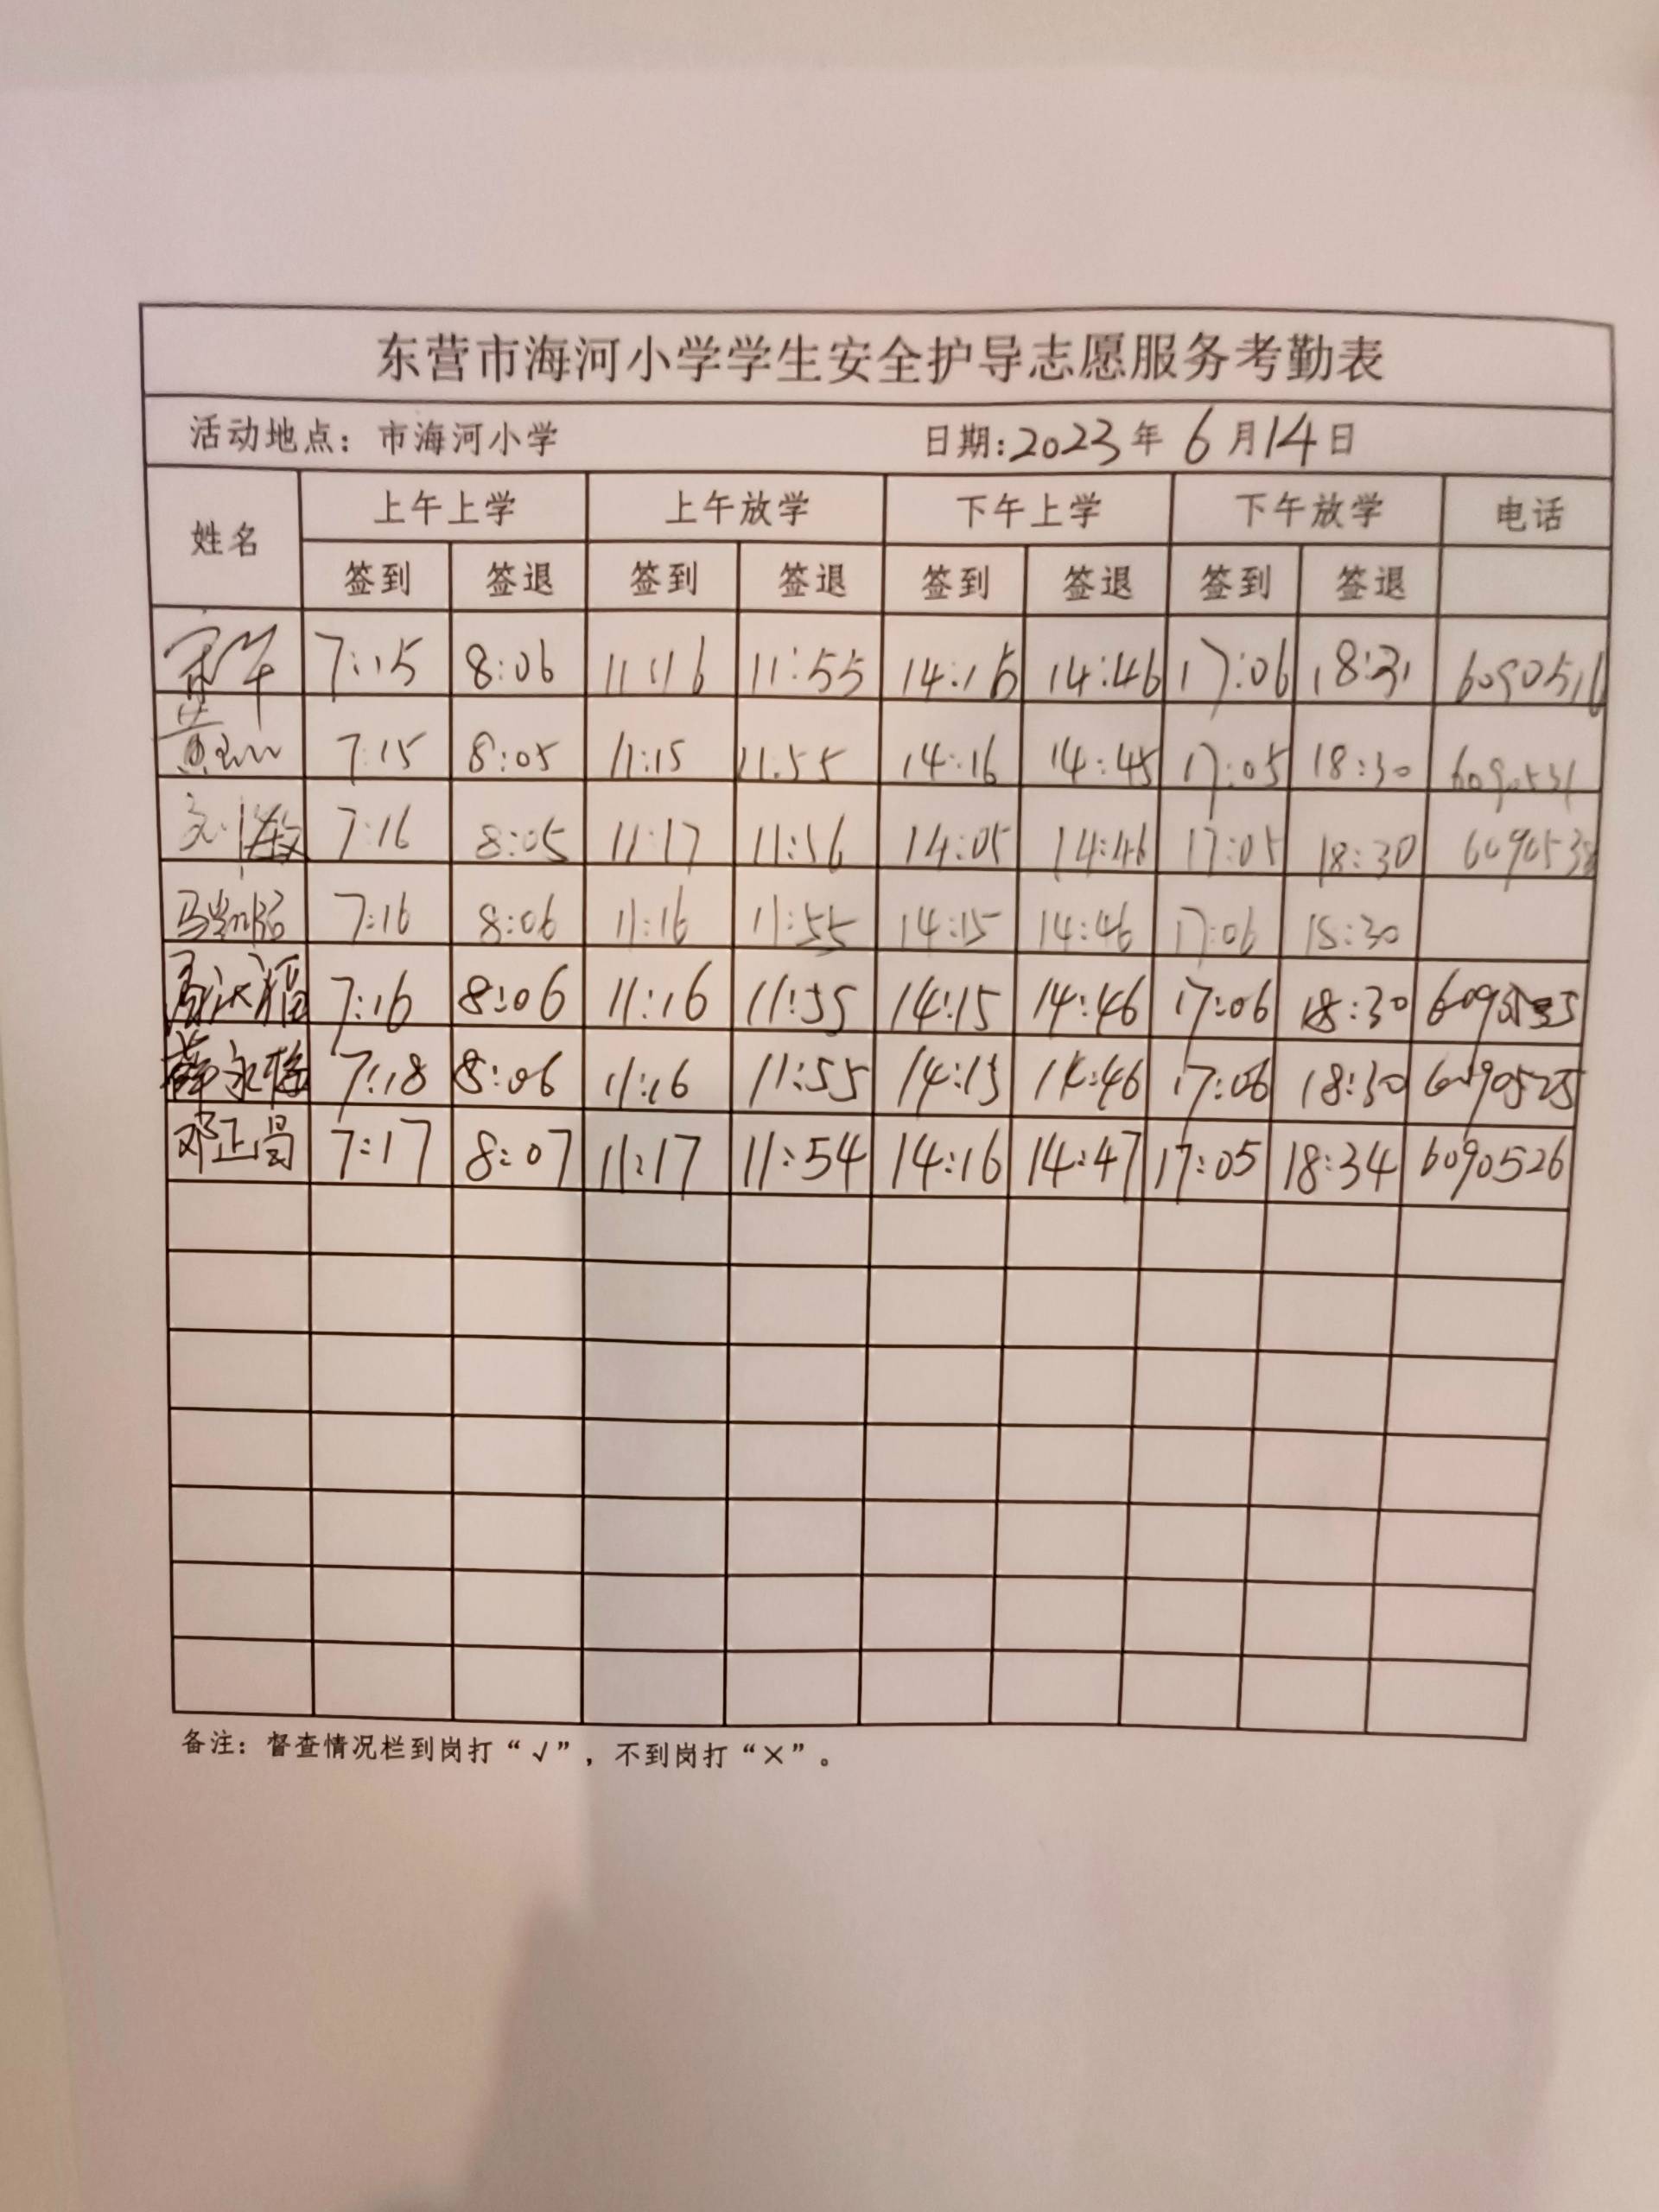 东营市海河小学学生安全护导志愿服务考勤表
活动地点：市海河小学 日期:2023年 6月14日
姓名 上午上学 上午放学 下午上学 下午放学 电话
签到 签退 签到 签退 签到 签退 签到 签退
7:15 8:06 11:16 11:55 14:15 14:46 17:06 18:31 6090516
黄 7:15 8:05 11:15 11.55 14:16 14:45 17:05 18:30 6090531
7:16 8:05 11:17 11:56 14:05 14:46 17:05 18:30
马 7:16 8:06 11:16 11:55 14:15 14:46 17:06 18:30
7:16 8:06 11:16 11:55 14:15 14:46 17:06 18:30
薛永梅 7:18 8:06 11:16 11:55 14:15 14:46 17:06 18:30 6090525
邓正昌 7:17 8:07 11:17 11:54 14:16 14:47 17:05 18:34 6090526
备注：督查情况栏到岗打“√”，不到岗打“×”。